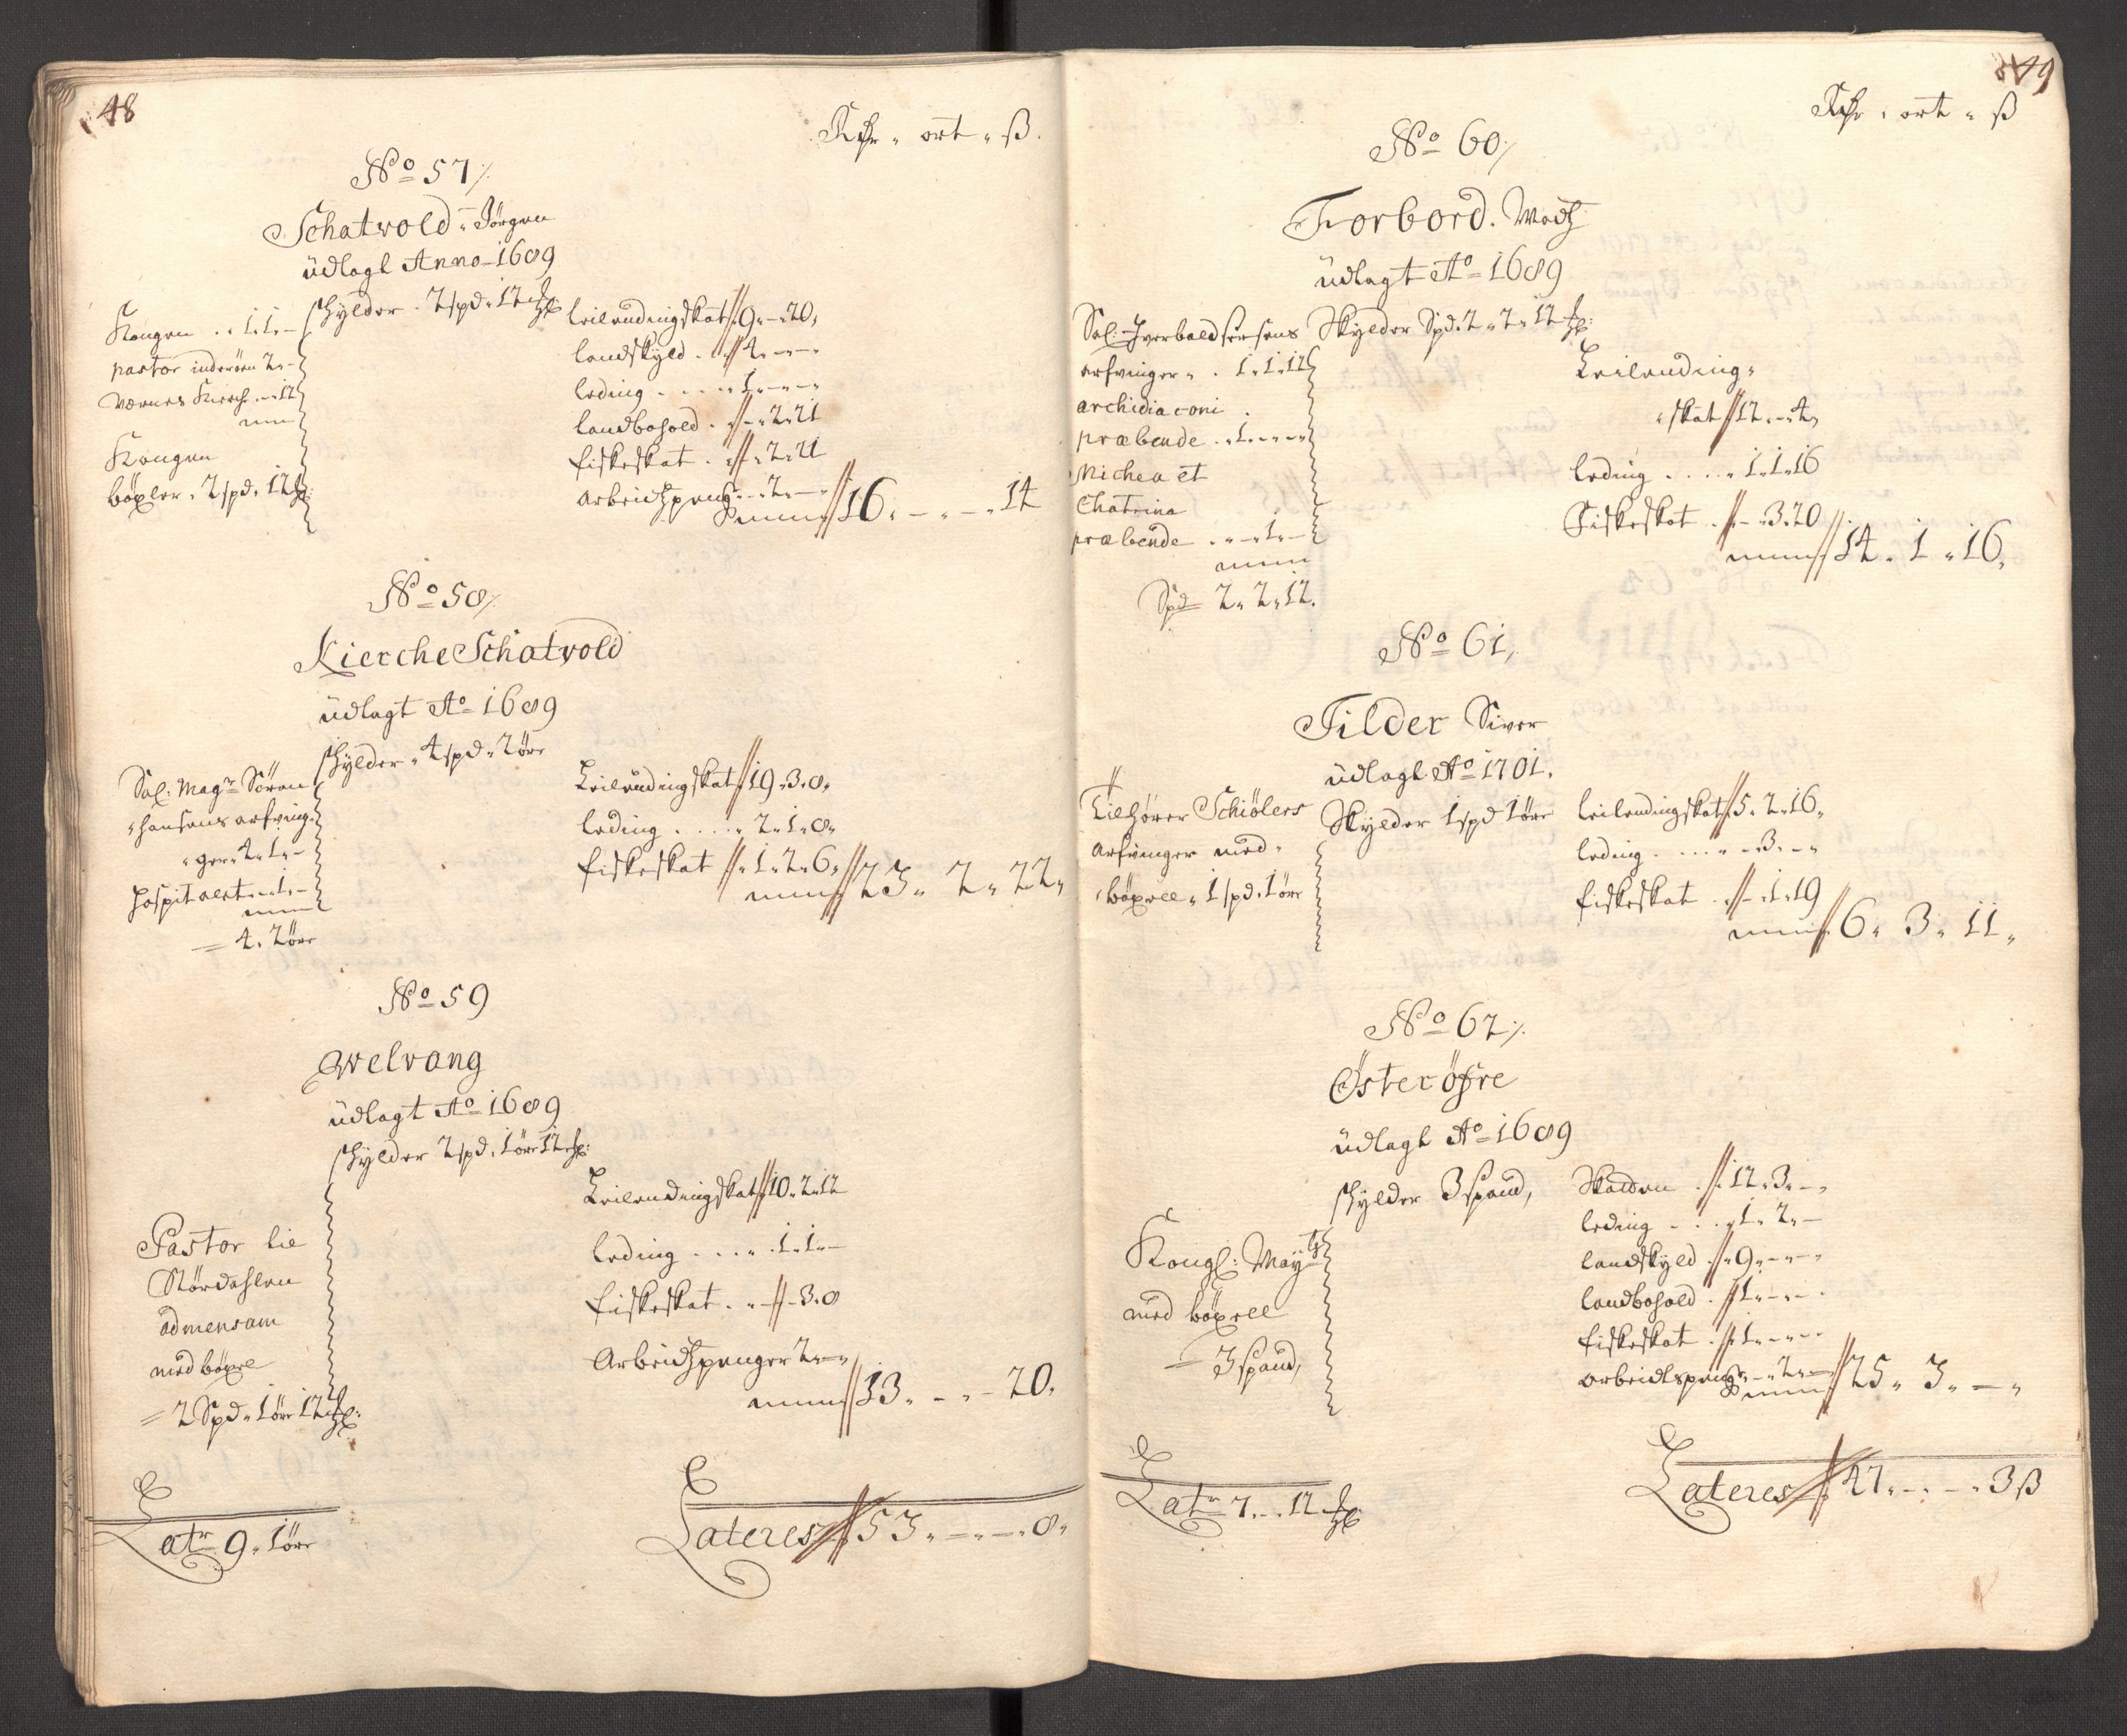 48
Rdr. ort. ß.
No 57
Schatvold. Jörgen
üdlagt Anno 1689
schylder. 2 spd. 12 ℔
Kongen . . 1. 1. –
pastor inderöen 2. –
Wærnes Kierch. – 12
Kongen
böxler. 2 spd. 12 ℔:
leilendingskat 9. – 20.
landskyld . 4. – –
leding . . . . 1. – –
landbohold . – 2. 21
fiskeskat . – 2. 21
arbeidtzpeng. – 2. –
Summa 16. – . – . 14
No 58
Kierche Schatvold
üdlagt Ao 1689
schylder. 4 spd. 2 öre
Sal: Magr Sören
Hansens arfving-
ger. 4. 1. –
Hospitalet. – 1. –
= 4. 2 öre
Leilendingskat 19. 3. 8.
leding . . . . 2. 1. 8.
fiskeskat 1. 2. 6.
23. 2. 22.
No 59
Welvang
üdlagt Ao 1689
schylder 2 spd. 1 öre 12 ℔:
Pastor til
Stördahlen
ad mensam
med böxle
= 2 Spd. 1 öre 12 ℔:
Leilendingskat 10. 2. 12
leding . . . . 1. 1. –
fiskeskat . . – 3. 8
Arbeidtzpenger 2. –
13. – . – 20.
Latr 9. 1 öre
Lateres 53. – . – . 8.
49
Rdr. ort. ß
No 60
Forbord. Madtz
üdlagt Ao 1689
Skylder Spd. 2. 2. 12 ℔:
arfvinger. . 1. 1. 12
archidiaconi .
præbende . . 1. – –
Michea et
Chatrina
præbende . . – 1. –
Spd 2. 2. 12.
Leilending-
skat 12. – 4.
leding . . . . 1. 1. 16
Fiskeskat . – 3. 20
14. 1. 16.
No 61.
Tilder Siver
üdlagt Ao 1701.
Skylder 1 spd 1 öre
Tilhörer Schiölers
Arfvinger med
böxell. 1 spd. 1 öre
leilendingskat 5. 2. 16.
leding . . . . – 3. –
fiskeskat . – 1. 19
6. 3. 11.
No 62
Österöfre
üdlagt Ao 1689
schylder 3 spand,
Kongl: Maytz
med böxell
= 3 spand,
Skatten . 12. 3. –
leding . . . 1. 2. –
landskyld . 9. – –
landbohold . 1. – –
fiskeskat . 1. – –
arbeidtspeng. – 2. –
Summa 25. 3. – .
Latr 7. – . 12 ℔
Lateres 47. – . – . 3 ß